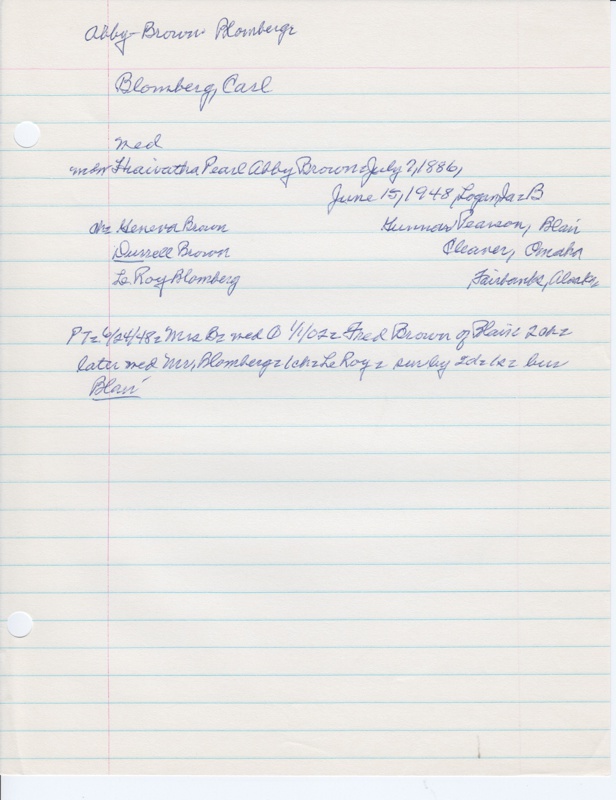 Abby-Brown- Blomberg
Blomberg, Carl
med
Pearl Abby Brown July 7, 1886,
June 15, 1948, Logan, Ia B
ch Geneva Brown Gunnar Pearson, Blair
Durrell Brown Cleaver, Omaha
Le Roy Blomberg Fairbanks, Alaska
PT 6/24/48 Mrs B med 1/1/02 Fred Brown of Blair 2 ch
later med Mr, Blomberg 1 ch Le Roy sur by 2d 1s bur
Blair